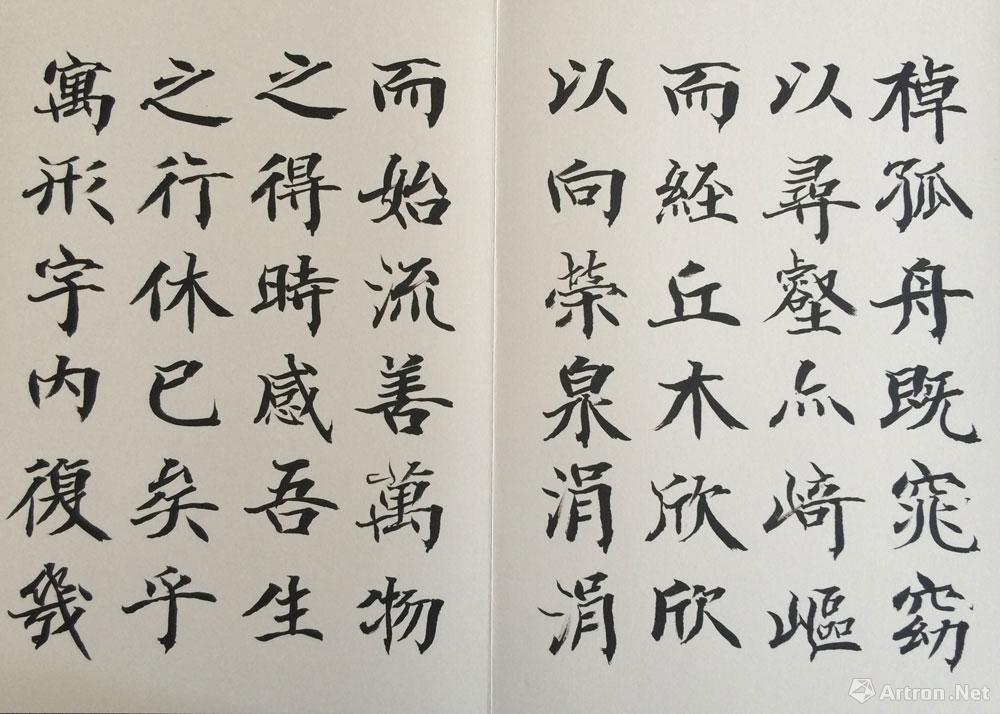 棹孤舟既窕窈
以尋壑亦崎嶇
而經丘木欣欣
以向榮泉涓涓
而始流善萬物
之得時感吾生
之行休已矣乎
寓形宇内復幾
Artron.Net